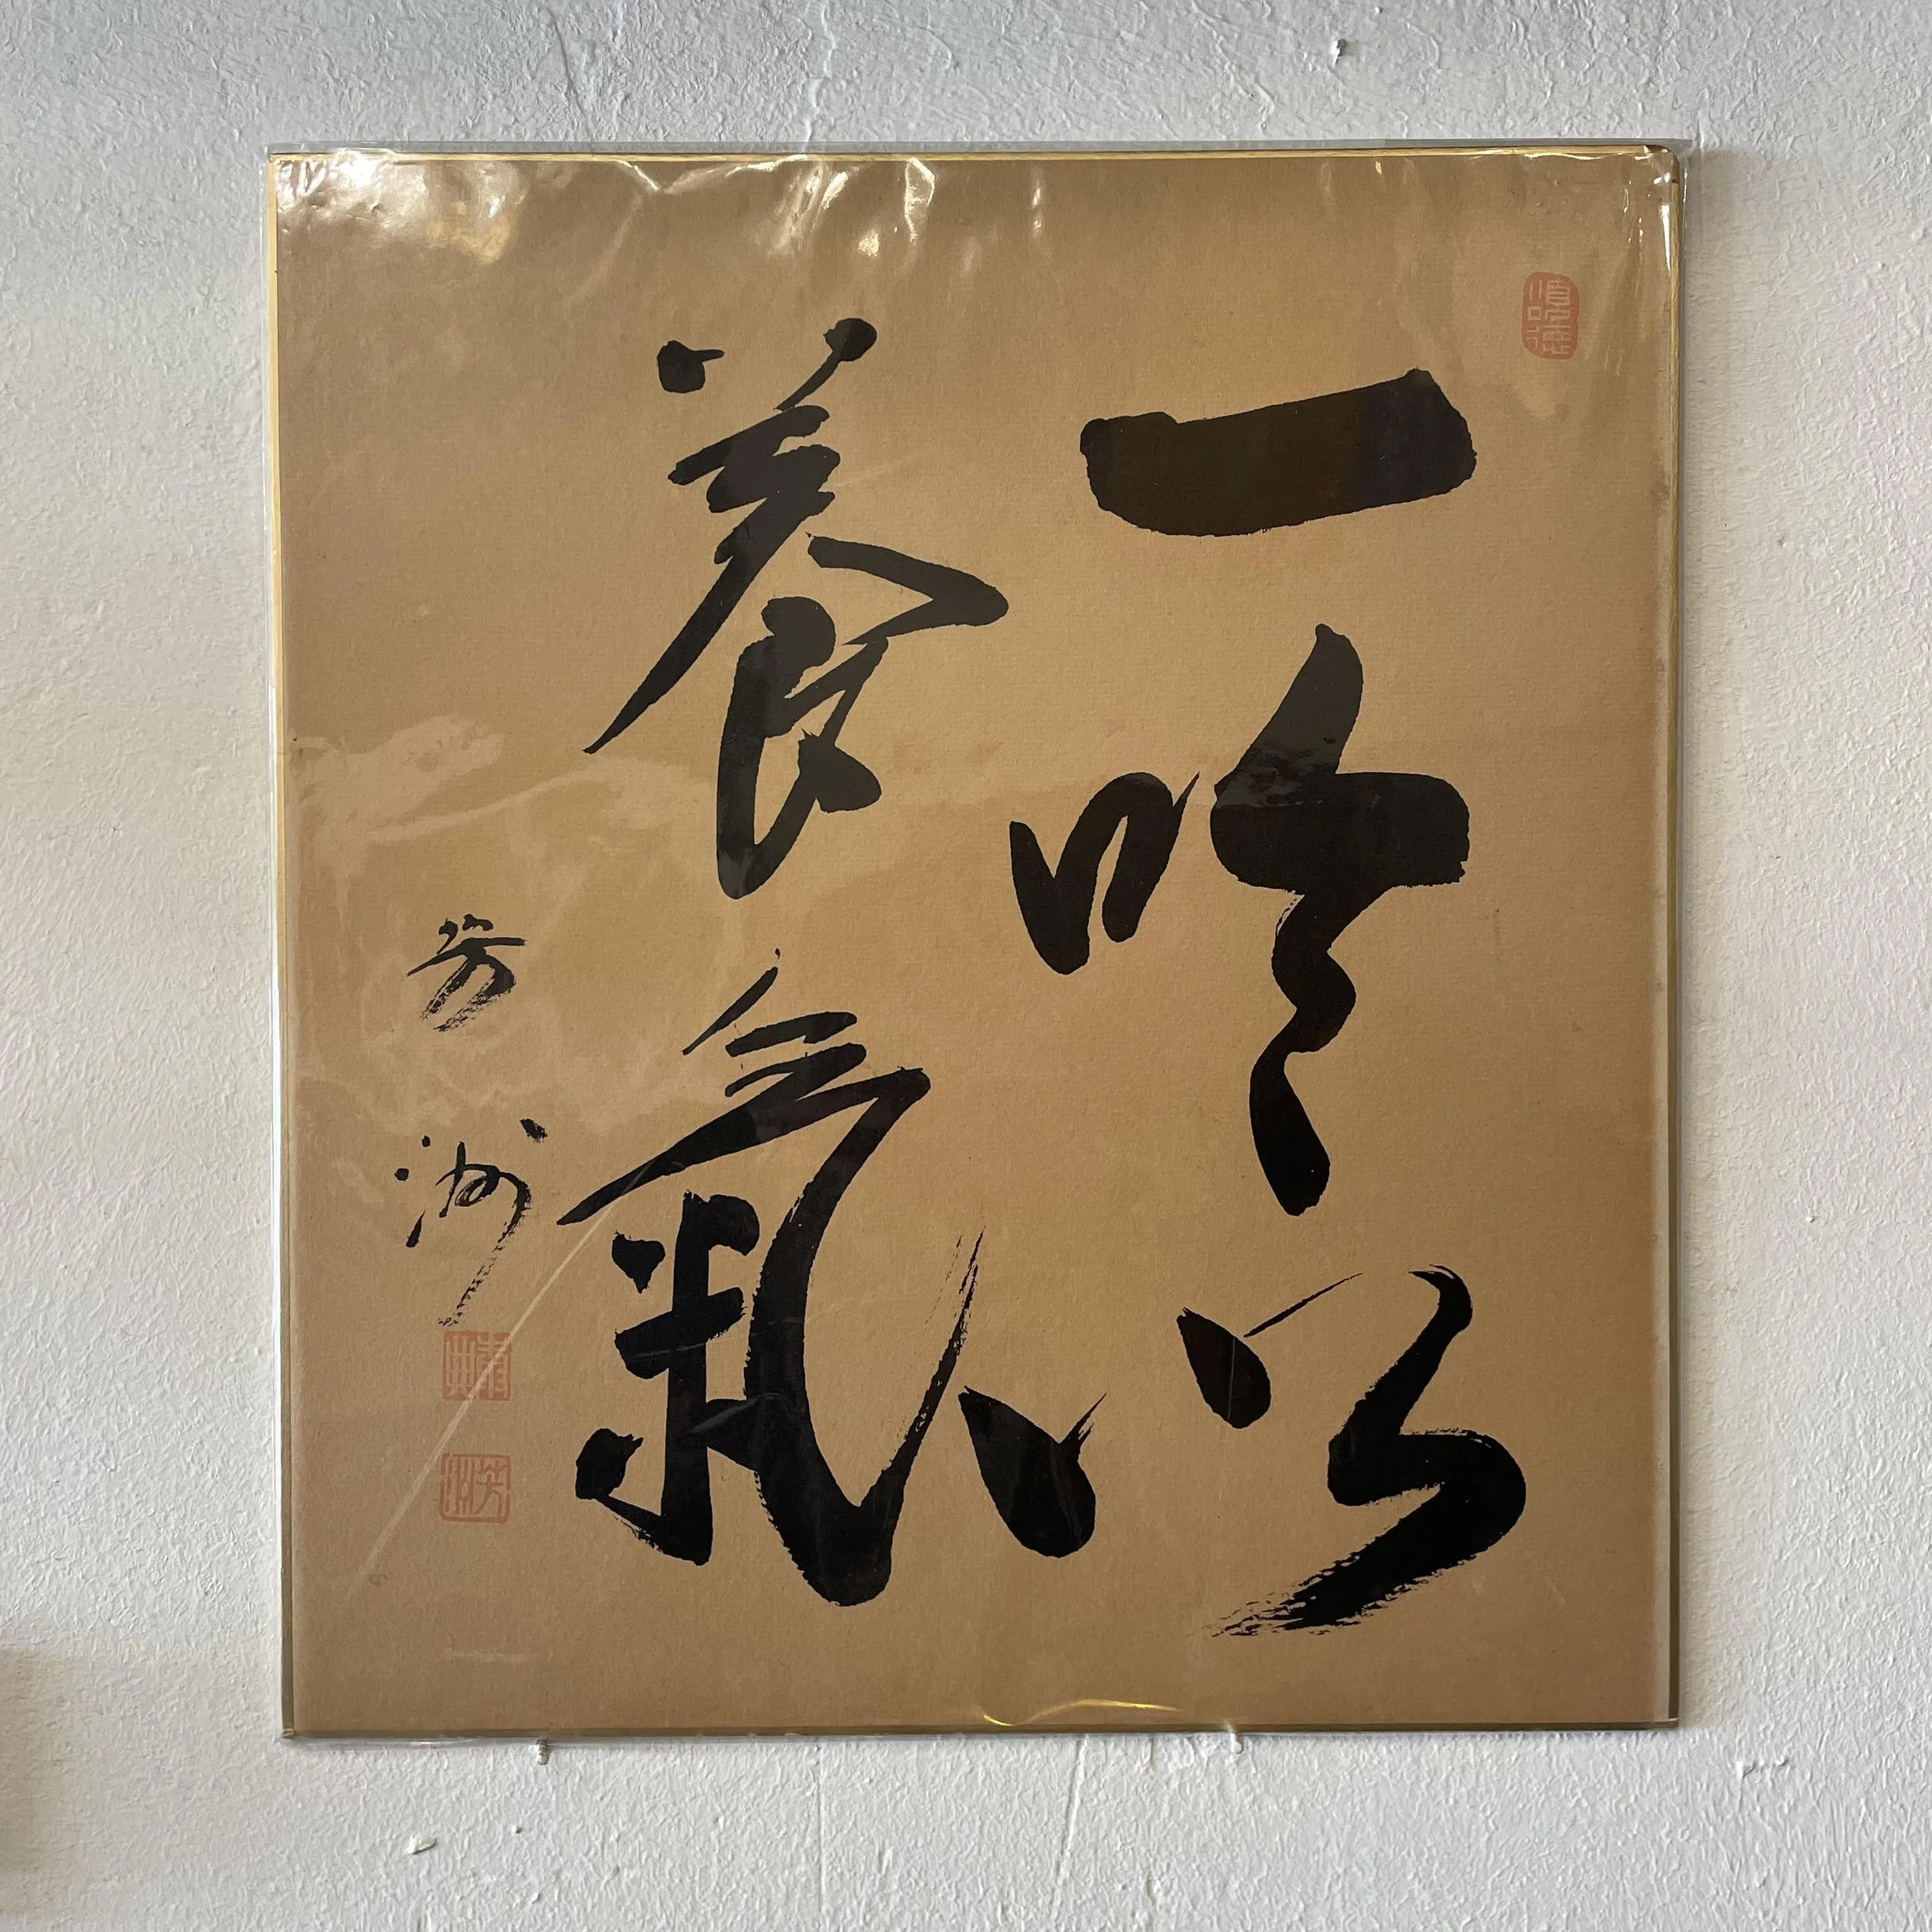 一吟以
養氣
芳洲